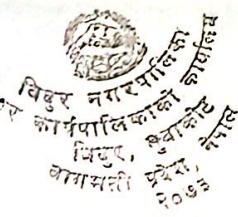 विदुर नगरपालिका
कार्यपालिकाको कार्यालय
विदुर, नुवाकोट
बागमती प्रदेश, नेपाल
२०७३